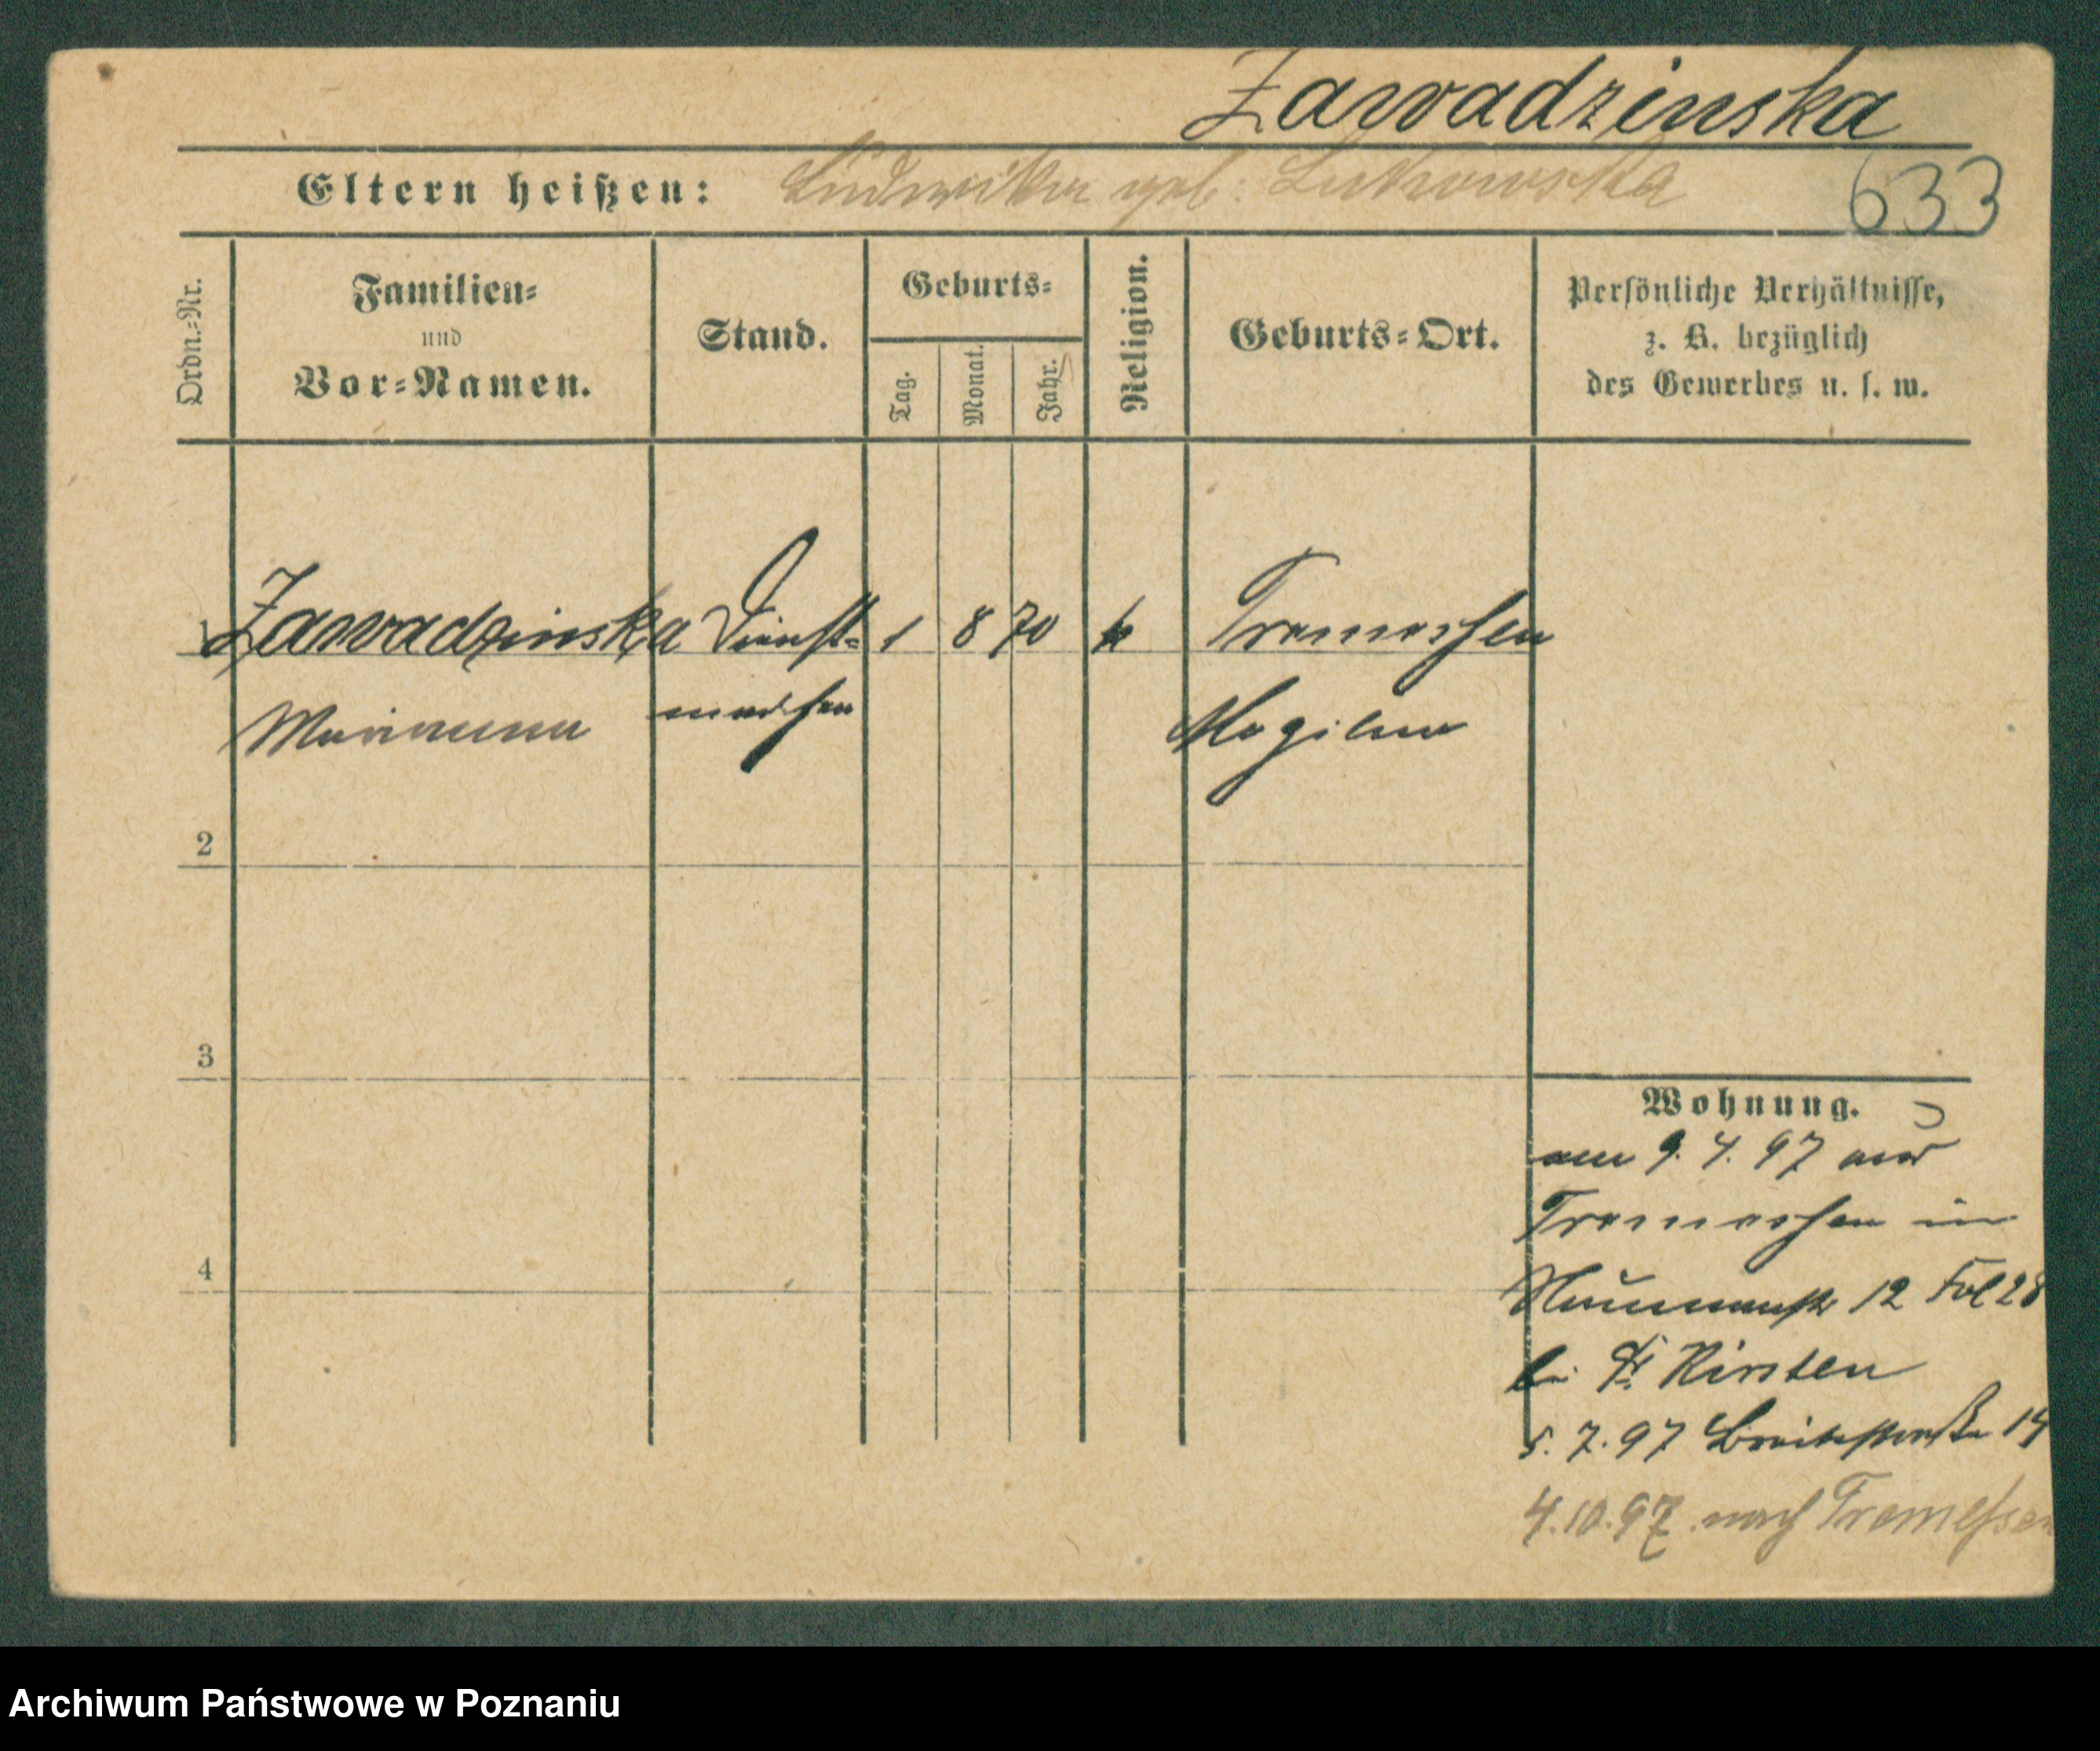 Zawadzinska
Eltern heißen: Ludwika geb. Lutkowska
633
Ordn.=Nr.
Familien=
und
Vor=Namen.
Stand.
Geburts=
Tag.
Monat.
Jahr.
Religion.
Geburts=Ort.
Persönliche Verhältnisse,
z. B. bezüglich
des Gewerbes u. s. w.
1 Zawadzinska Dienst= 1 8 70 k Tremessen
Marianna mädchen Mogilno
2
3
4
Wohnung.
am 9. 4. 97 aus
Tremessen in
12 Fol 28
bei Kirsten
5. 7. 97 Breitestraße 14
4. 10. 97. nach Tremessen
Archiwum Państwowe w Poznaniu